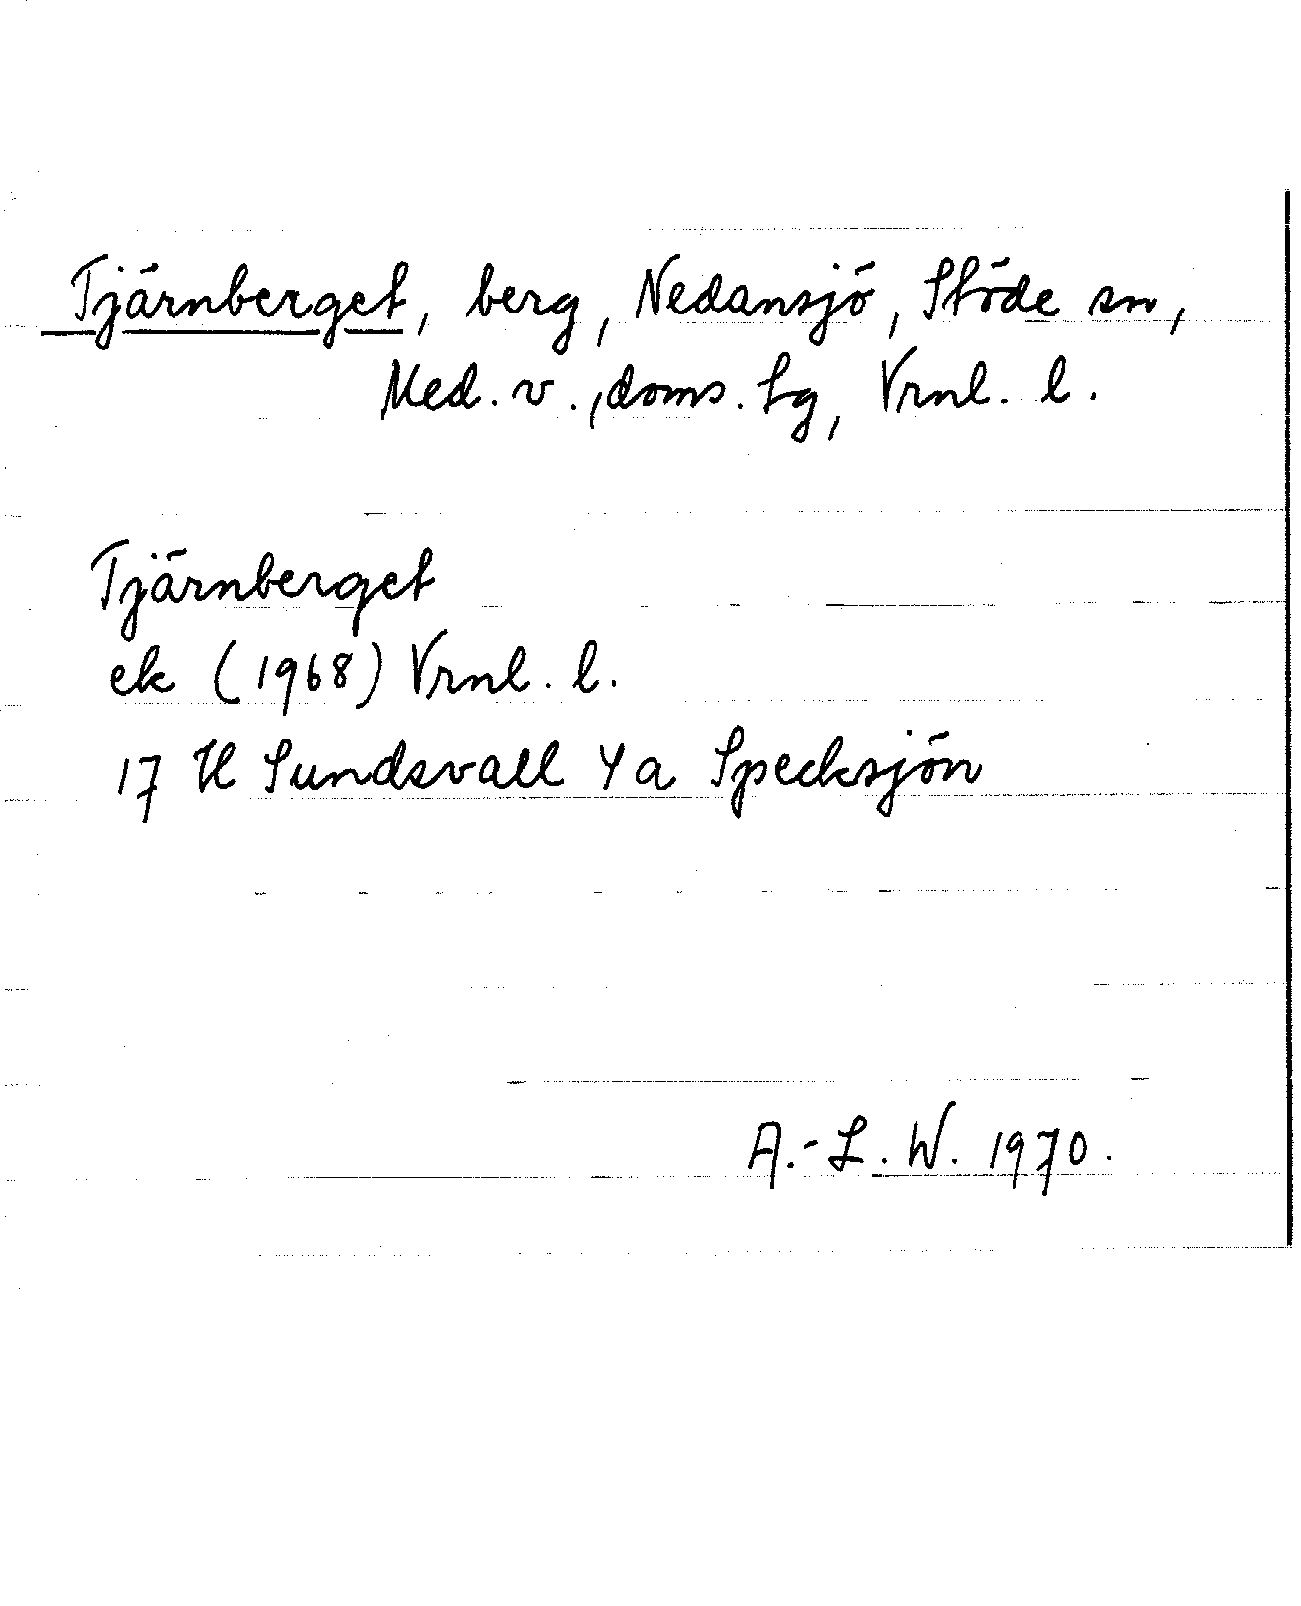 Tjärnberget, berg, Nedansjö, Stöde sn,
Med. v., doms. Lg, Vrnl. l.
Tjärnberget
ek (1968) Vrnl. l.
17 H Sundsvall 4 a Specksjön
A.-L. W. 1970.